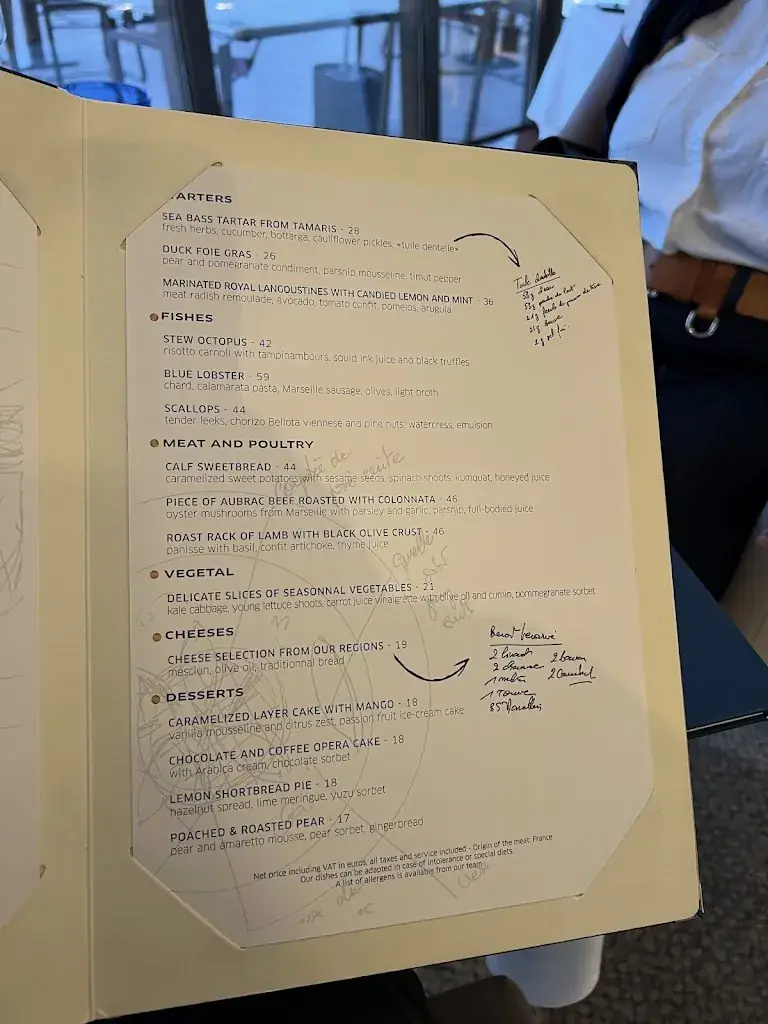 ARTERS
SEA BASS TARTAR FROM TAMARIS - 28
fresh herbs, cucumber, bottarga, cauliflower pickles, «tuile dentelle»
DUCK FOIE GRAS - 26
pear and pomegranate condiment, parsnip mousseline, timut pepper
MARINATED ROYAL LANGOUSTINES WITH CANDIED LEMON AND MINT - 36
meat radish remoulade, avocado, tomato confit, pomelos, arugula
Tuile dentelle
FISHES
STEW OCTOPUS - 42
risotto carnoli with tampinambours, squid ink juice and black truffles
BLUE LOBSTER - 59
chard, calamarata pasta, Marseille sausage, olives, light broth
SCALLOPS - 44
tender leeks, chorizo Bellota viennese and pine nuts, watercress, emulsion
MEAT AND POULTRY
CALF SWEETBREAD - 44
caramelized sweet potatoes with sesame seeds, spinach shoots, kumquat, honeyed juice
PIECE OF AUBRAC BEEF ROASTED WITH COLONNATA - 46
oyster mushrooms from Marseille with parsley and garlic, parsnip, full-bodied juice
ROAST RACK OF LAMB WITH BLACK OLIVE CRUST - 46
panisse with basil, confit artichoke, thyme juice
VEGETAL
DELICATE SLICES OF SEASONNAL VEGETABLES - 21
kale cabbage, young lettuce shoots, carrot juice vinaigrette with olive oil and cumin, pommegranate sorbet
CHEESES
CHEESE SELECTION FROM OUR REGIONS - 19
mesclun, olive oil, traditionnal bread
DESSERTS
CARAMELIZED LAYER CAKE WITH MANGO - 18
vanilla mousseline and citrus zest, passion fruit ice-cream cake
CHOCOLATE AND COFFEE OPERA CAKE - 18
with Arabica cream, chocolate sorbet
LEMON SHORTBREAD PIE - 18
hazelnut spread, lime meringue, yuzu sorbet
POACHED & ROASTED PEAR - 17
pear and amaretto mousse, pear sorbet, gingerbread
Net price including VAT in euros, all taxes and service included - Origin of the meat: France
Our dishes can be adapted in case of intolerance or special diets.
A list of allergens is available from our team.